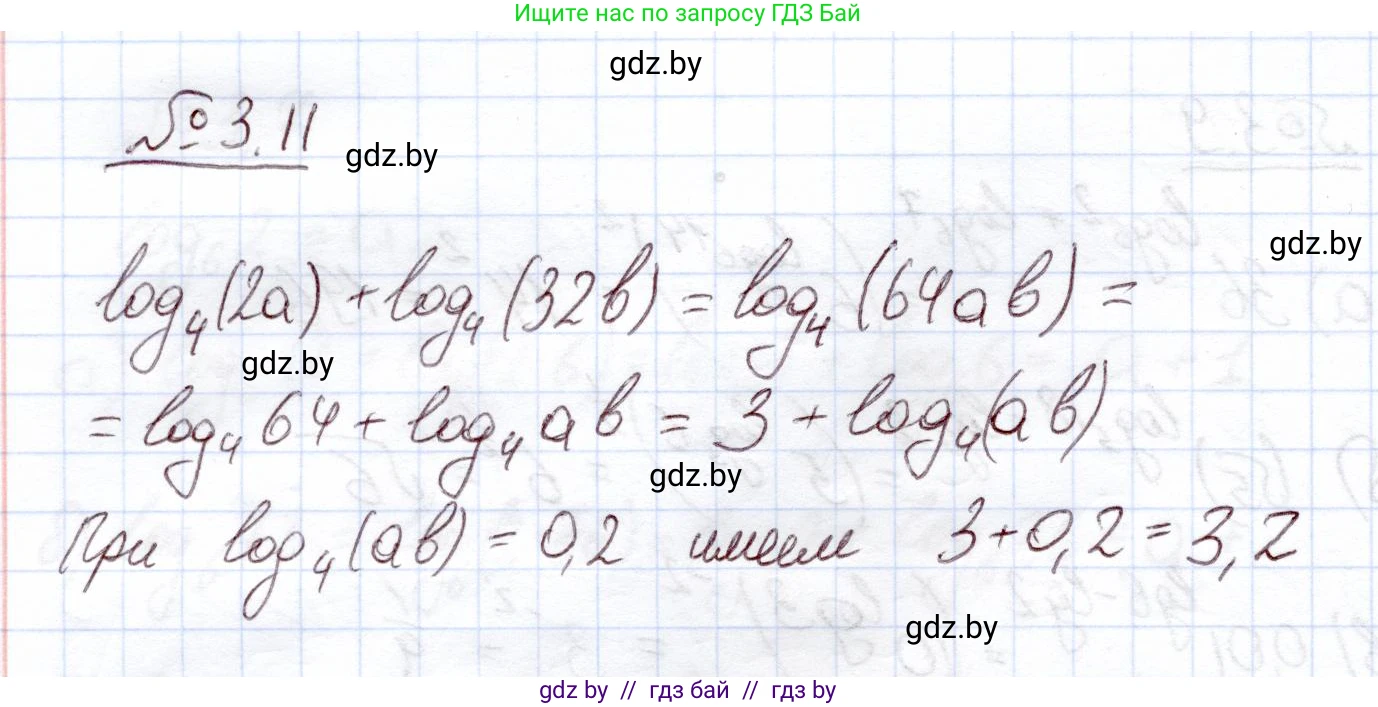 Ищите нас по запросу ГДЗ Бай
gdz.by
№ 3.11
gdz.by
gdz.by
log₄(2a) + log₄(32b) = log₄(64ab) =
gdz.by
= log₄ 64 + log₄ ab = 3 + log₄(ab)
gdz.by
При log₄(ab) = 0,2 имеем 3+0,2 = 3,2
gdz.by
gdz by // гдз бай // gdz by